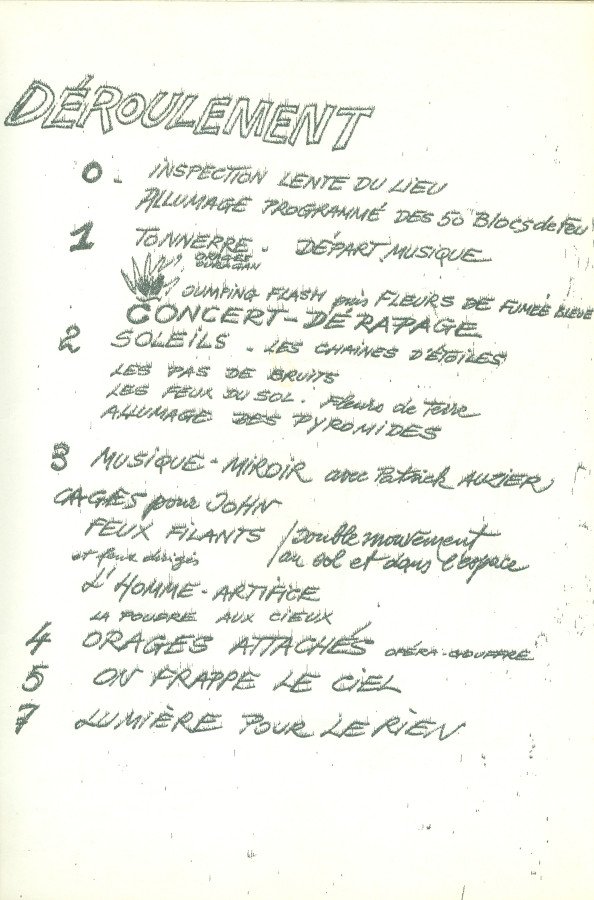 DÉROULEMENT
0. INSPECTION LENTE DU LIEU
ALLUMAGE PROGRAMMÉ DES 50 BLOCS de FEU
1 TONNERRE. DÉPART MUSIQUE
ORAGES
OURAGAN
JUMPING FLASH puis FLEURS DE FUMÉE BLEUE
CONCERT-DÉRAPAGE
2 SOLEILS. LES CHAINES D'ÉTOILES
LES PAS DE BRUITS
LES FEUX DU SOL. Fleurs de Terre
ALLUMAGE DES PYROMIDES
3 MUSIQUE-MIROIR avec Patrick AUZIER
CAGES pour JOHN
FEUX FILANTS / Double mouvement
et feux dirigés / au sol et dans l'espace
L'HOMME-ARTIFICE
LA POUDRE AUX CIEUX
4 ORAGES ATTACHÉS OPÉRA-GOUFFRE
5 ON FRAPPE LE CIEL
7 LUMIÈRE POUR LE RIEN